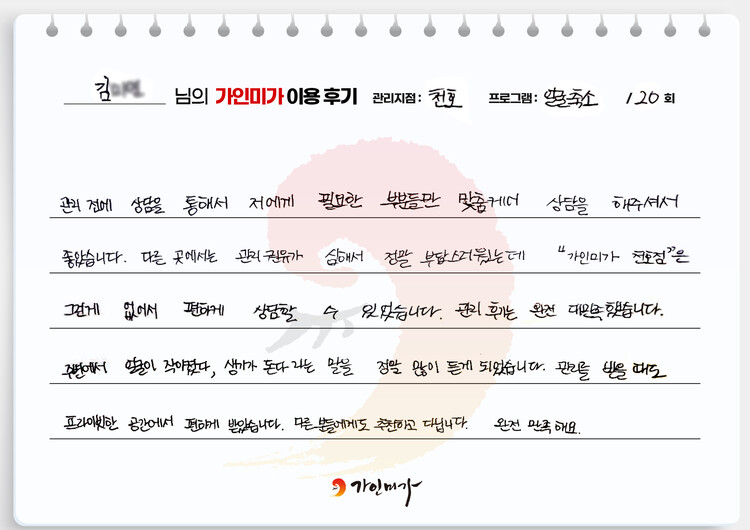 김 님의 가인미가 이용 후기 관리지점 : 천호 프로그램 : 얼굴축소 120 회
관리 전에 상담을 통해서 저에게 필요한 부분들만 맞춤케어 상담을 해주셔서
좋았습니다. 다른 곳에서는 관리권유가 심해서 정말 부담스러웠는데 "가인미가 천호점"은
그런게 없어서 편하게 상담할 수 있었습니다. 관리 후기는 완전 대만족했습니다.
주변에서 얼굴이 작아졌다, 생기가 돈다 라는 말을 정말 많이 듣게 되었습니다. 관리를 받을 때도
프라이빗한 공간에서 편하게 받았습니다. 다른분들에게도 추천하고 다닙니다. 완전 만족해요.
가인미가